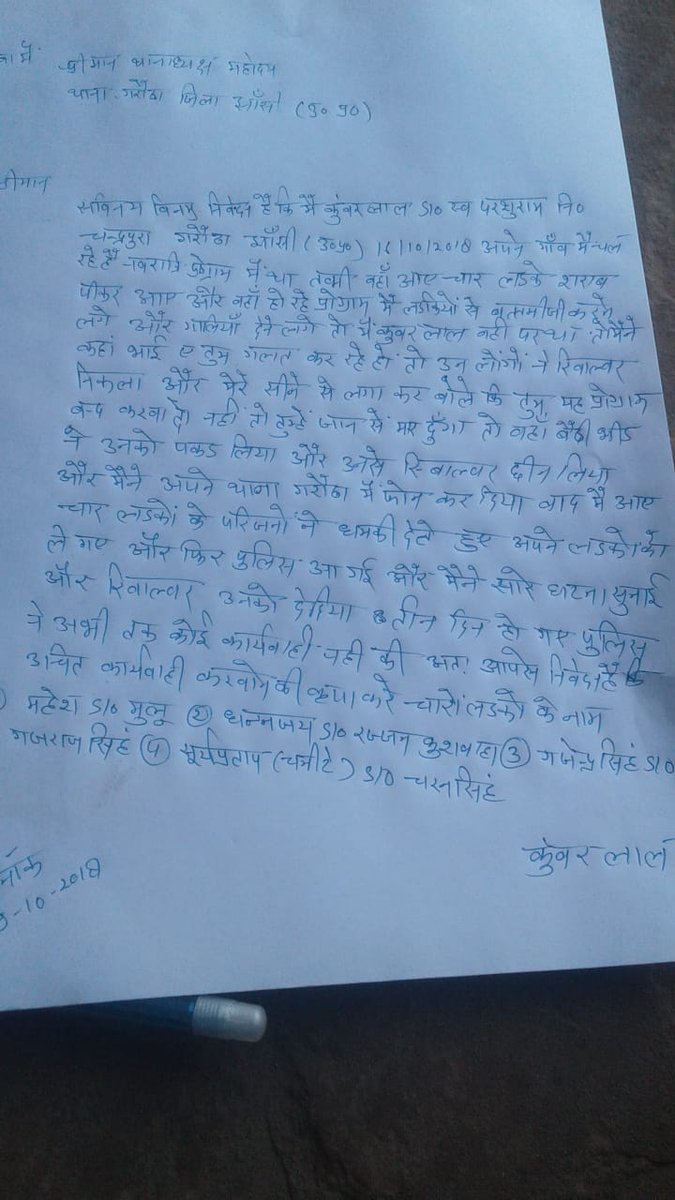 श्रीमान थानाध्यक्ष महोदय
थाना गरौठा जिला झाँसी (उ० प्र०)
श्रीमान
सविनय विनम्र निवेदन है कि मैं कुंवरलाल S/० स्व परशुराम नि०
चन्द्रपुरा गरौठा झाँसी (उ०प्र०) 16/10/2018 अपने गाँव मैं चल
रहे है नवरात्रि प्रोग्राम मैं था तभी वहाँ आए चार लडके शराब
पीकर आए और वहाँ हो रहे प्रोग्राम मैं लडकियों से बत्तमीजी करने
लगे और गालियाँ देने लगे तो मैं कुंवर लाल वही पर था तो मैंने
कहां भाई ए तुम गलत कर रहे हो तो उन लोगों ने रिवाल्वर
निकला और मेरे सीने से लगा कर बोले कि तुम यह प्रोग्राम
बन्द करवा दो नहीं तो तुम्हें जान से मार दुँगा तो वहा बैठी भीड
ने उनको पकड लिया और उनसे रिवाल्वर छीन लिया
और मैंने अपने थाना गरौठा मैं फोन कर दिया बाद मैं आए
चार लडकों के परिजनों ने धमकी देते हुए अपने लडको को
ले गए और फिर पुलिस आ गई और मैंने सारे घटना सुनाई
और रिवाल्वर उनको देदिया तीन दिन हो गए पुलिस
ने अभी तक कोई कार्यवाही नही की अतः आपसे निवेदन है कि
उचित कार्यवाही करवाने की कृपा करे चारों लडको के नाम
महेश S/० मुलू ② धनन्जय S/० रज्जन कुशवाहा ③ गजेन्द्र सिंह S/०
गजराज सिंह ④ सूर्यप्रताप S/० चरनसिंह
कुंवर लाल
-10-2018